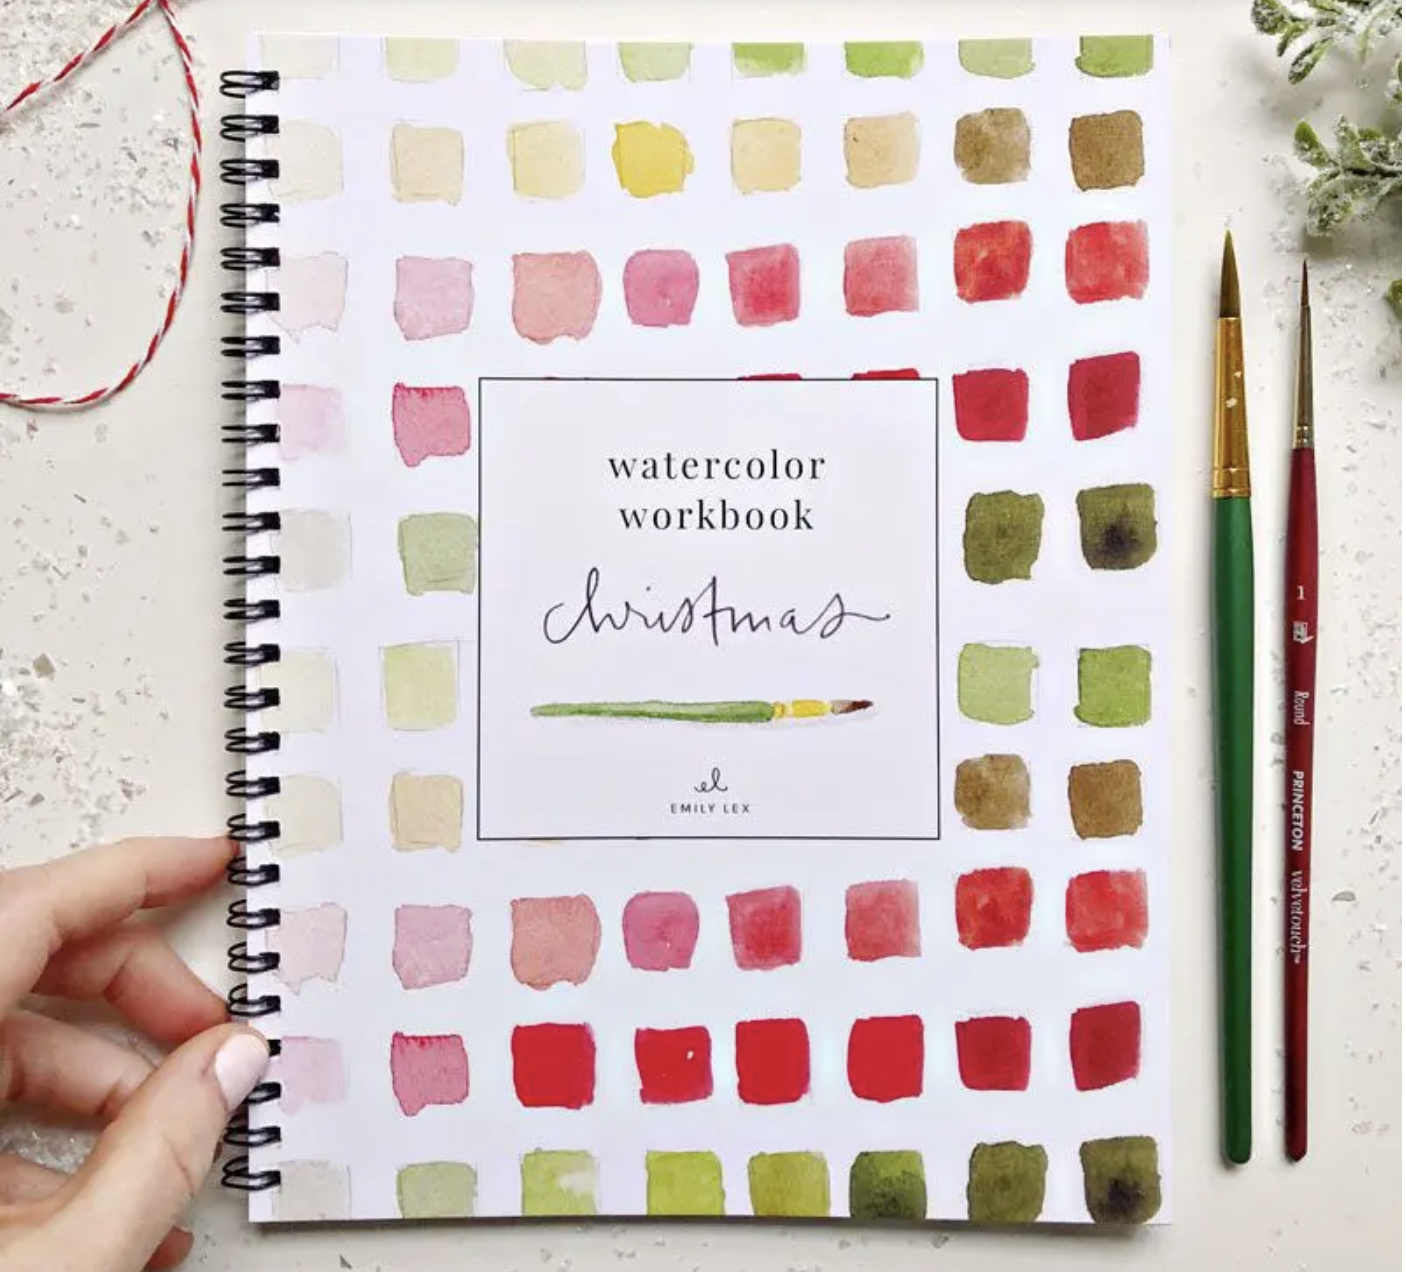 watercolor
workbook
christmas
el
EMILY LEX
1
Round
PRINCETON
velvetouch™